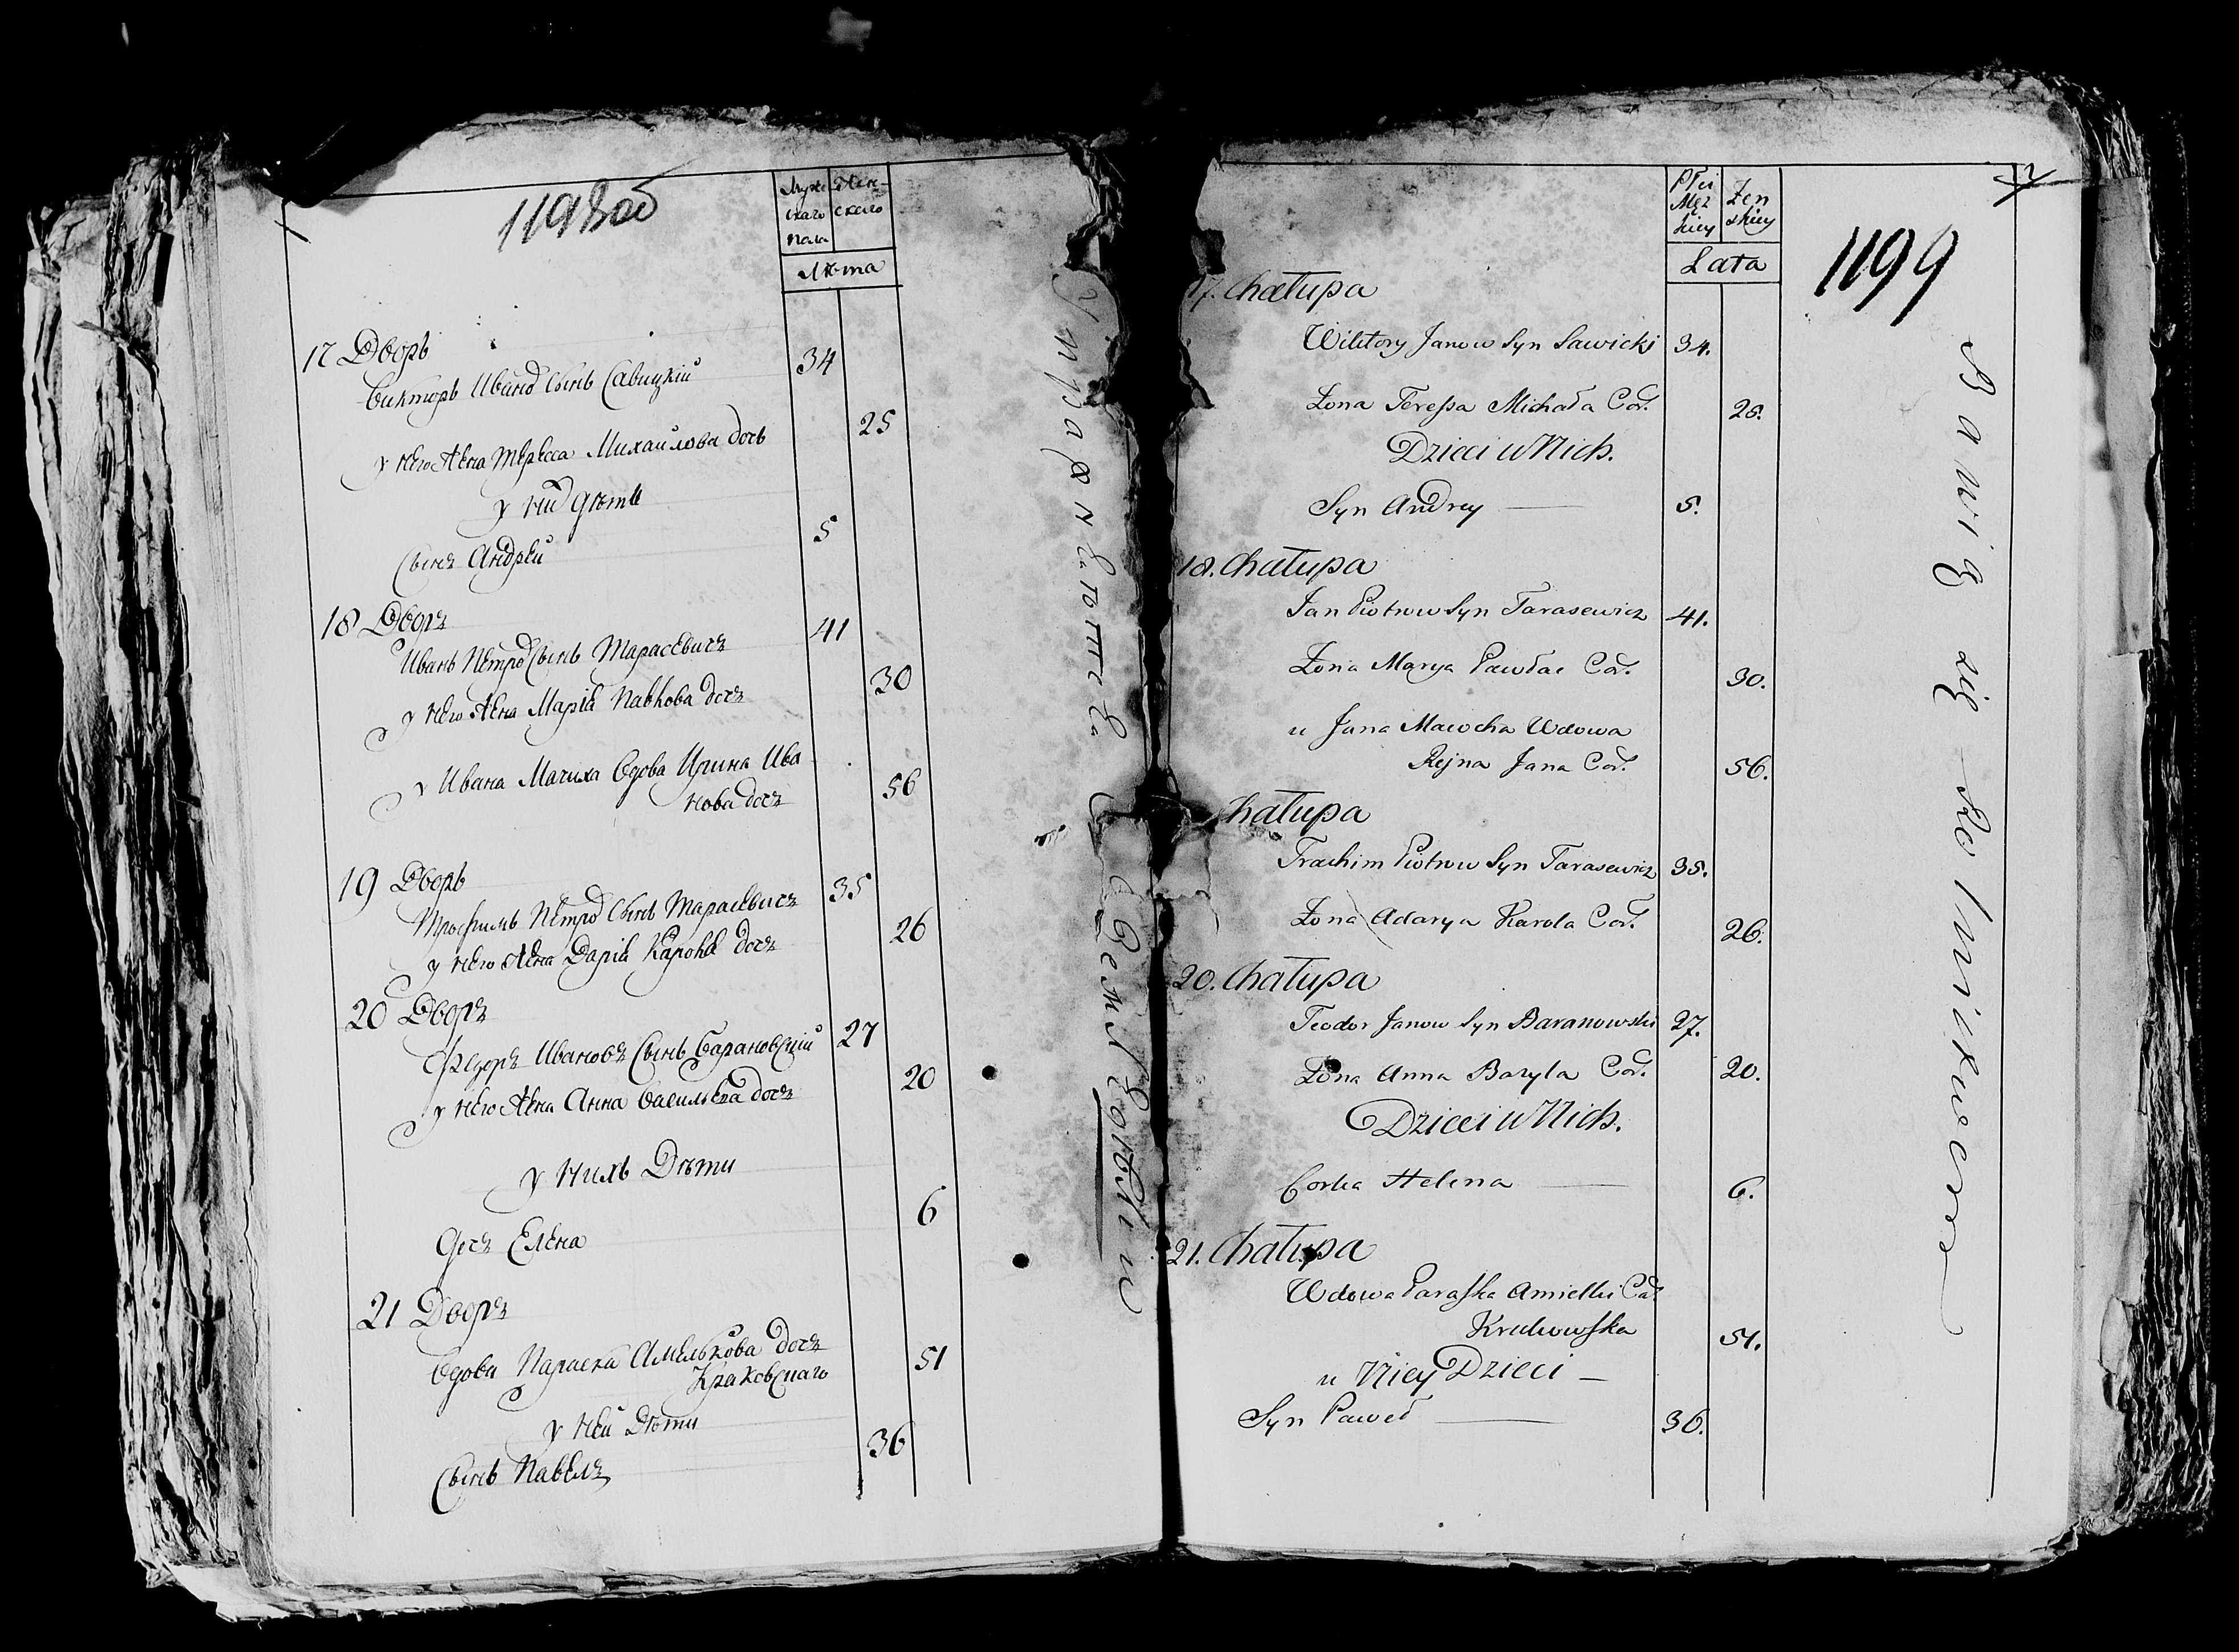 1198 об
Муже
скаго
пола
Жен-
скаго
Лѣта
17 Дворъ
Викторъ Ивано Сынъ Савицкій 34
у него Жена Тересса Михайлова дочь 25
у ни дѣти
Сынъ Андрей 5
18 Дворъ
Иванъ Петро Сынъ Тарасевичъ 41
у него Жена Марія Павлова дочъ 30
у Ивана Мачиха Вдова Ирина Ива
нова дочъ 56
19 Дворъ
Трофимъ Петро Сынъ Тарасевичъ 35
у него Жена Дарія дочъ 26
20 Дворъ
Федоръ Ивановъ Сынъ Барановскій 27
у него Жена Анна Васильева дочъ 20
у нихъ Дѣти
Дочъ Елена 6
21 Дворъ
Вдова Параска Амелькова дочъ 51
у ней Дѣти
Сынъ Павелъ 36
1199
Płci
Męz
kiey
Żen
skiey
Lata
17. Chałupa
Wiktory Janow Syn Sawicki 34.
Żona Teressa Michała Cor. 25.
Dzieci u Nich.
Syn Andrey 5.
18. Chałupa
Jan Piotrow Syn Tarasewicz 41.
Żona Marya Pawła Cor. 30.
u Jana Macocha Wdowa
Rejna Jana Cor. 56.
Chałupa
Trachim Piotrow Syn Tarasewicz 35.
Żona Adarya Karola Cor. 26.
20. Chałupa
Teodor Janow Syn Baranowski 27.
Żona Anna Bazyla Cor. 20.
Dzieci u Nich.
Corka Helena 6.
21. Chałupa
Wdowa Paraska Amielki Cor.
51.
u Niey Dzieci
Syn Paweł 36.